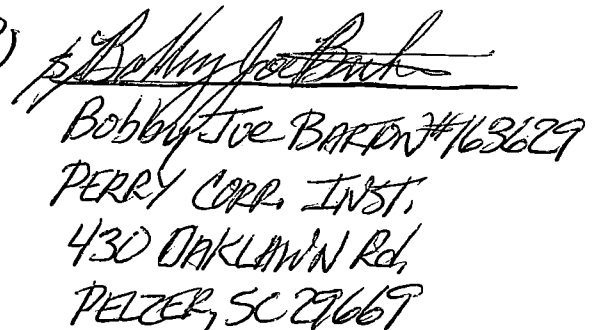 s/ Bobby Joe Barton
Bobby Joe BARTON #163629
PERRY CORR. INST.
430 OAKLAWN Rd,
PELZER, SC 29669